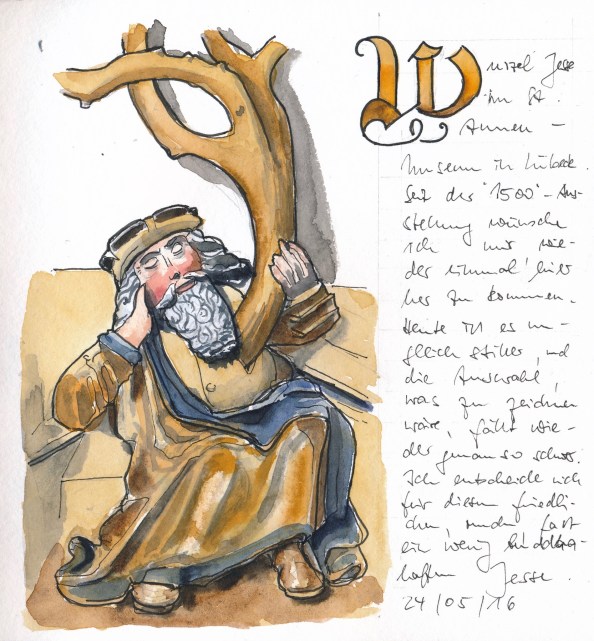 Wurzel Jesse
im St.
Annen –
Museum in Lübeck.
Seit der '1500'-Aus-
stellung wünsche
ich mir wie-
der einmal hier
her zu kommen.
Heute ist es un-
gleich stiller, und
die Auswahl,
was zu zeichnen
wäre, fällt wie-
der genau so schwer.
Ich entscheide mich
für diesen friedli-
chen, fast
ein wenig buddha-
haften Jesse.
24/05/16